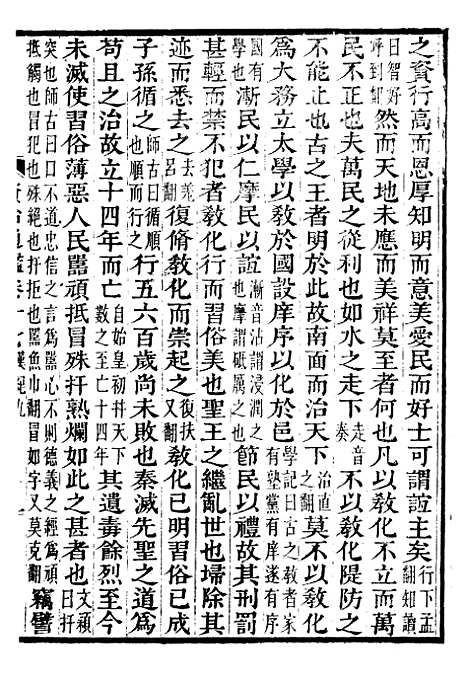 之資行高而恩厚知明而意美愛民而好士可謂誼主矣行下孟翻知讀
曰智好呼到翻然而天地未應而美祥莫至者何也凡以敎化不立而萬
民不正也夫萬民之從利也如水之走下走音奏不以敎化隄防之
不能止也古之王者明於此故南面而治天下治直之翻莫不以敎化
爲大務立太學以敎於國設庠序以化於邑學記曰古之敎者家有塾黨有庠遂有序
國有學也漸民以仁摩民以誼漸音沾謂浸潤之也摩謂砥厲之也節民以禮故其刑罰
甚輕而禁不犯者敎化行而習俗美也聖王之繼亂世也埽除其
迹而悉去之去羌呂翻復脩敎化而崇起之復扶又翻敎化已明習俗已成
子孫循之師古曰循順也順而行之行五六百歲尚未敗也秦滅先聖之道爲
苟且之治故立十四年而亡自始皇初幷天下數之至亡十四年其遺毒餘烈至今
未滅使習俗薄惡人民嚚頑抵冒殊扞熟爛如此之甚者也文穎曰扞
突也師古曰口不道忠信之言爲嚚心不則德義之經爲頑抵觸也冒犯也殊絶也扞拒也嚚魚巾翻冒如字又莫克翻竊譬
資治通鑑卷十七漢紀九